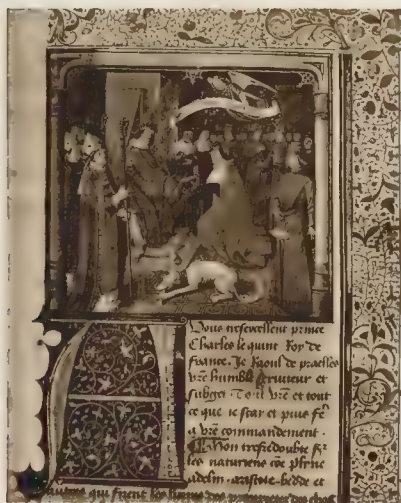 Vous tresexcellent prince
Charles le quint Roy de
france. Je Raoul de praelles
vre humble seruiteur et
subget Tout vre et tout
ce que ie scay et puis
a vre commandement.
Mon tresredoubte
les naturiens
aristote bedde et
autres qui